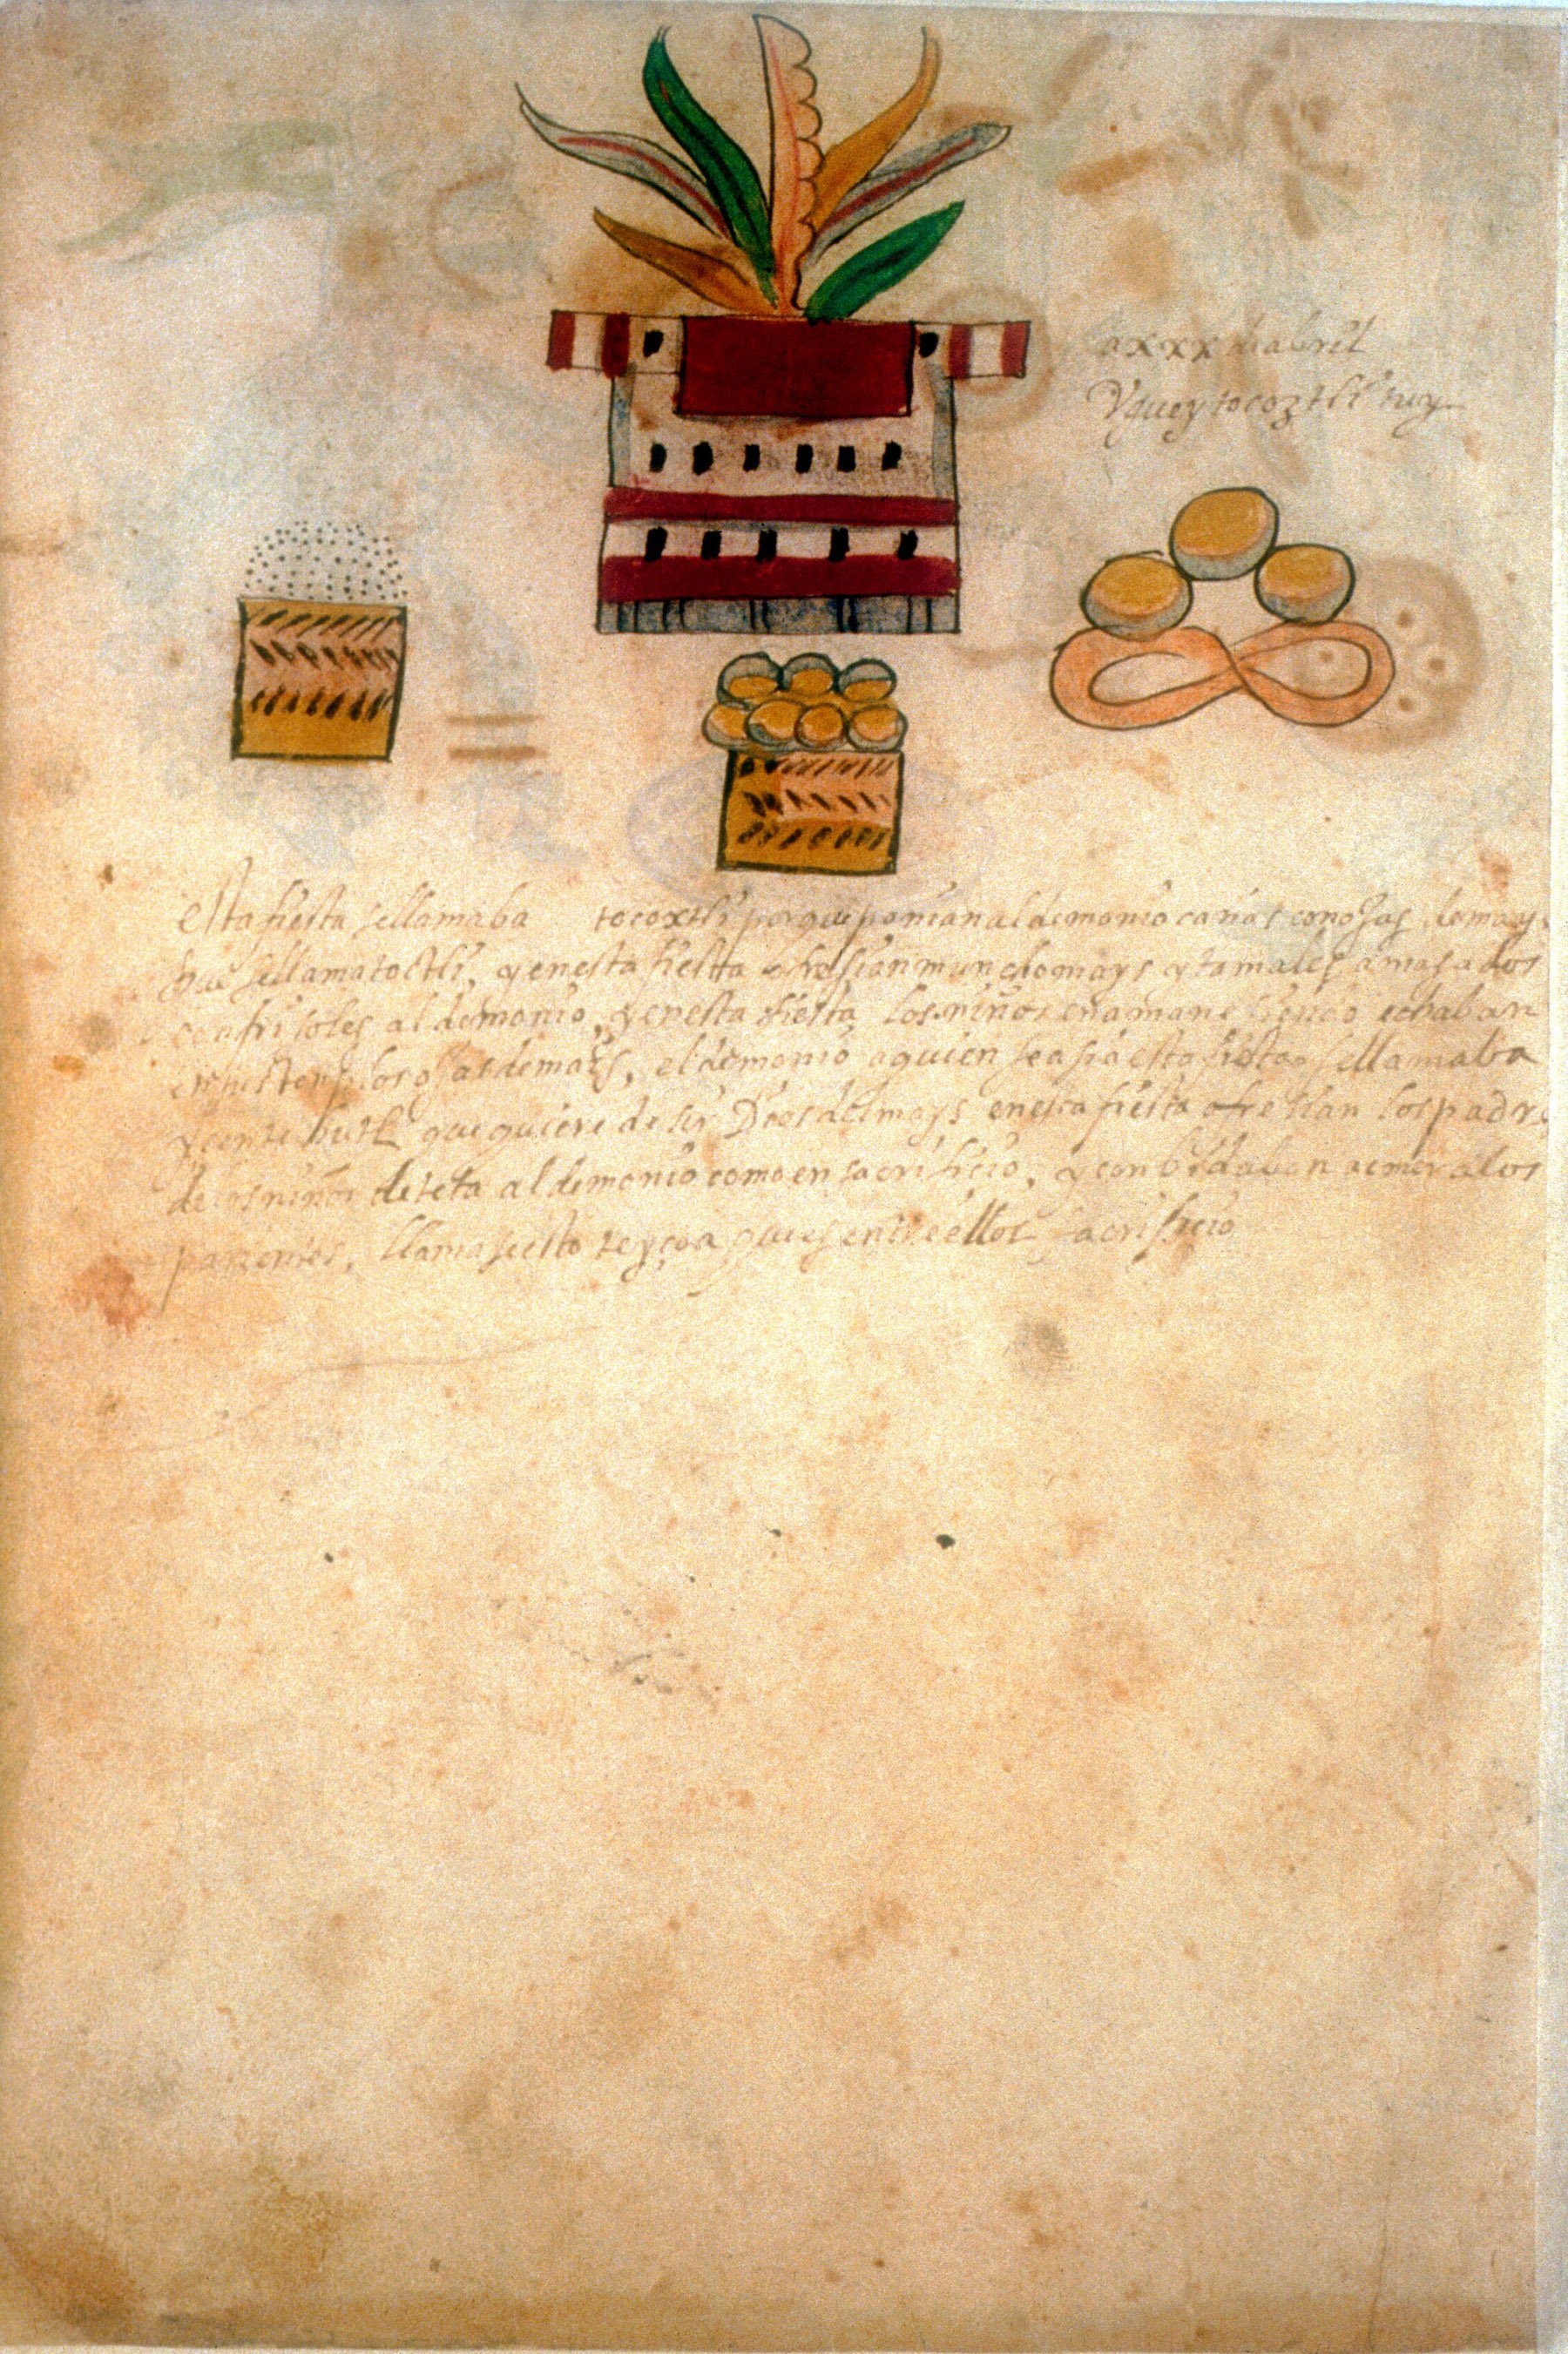 a xxx de abril
Yquey tocoztli huy
esta fiesta se llamaba tocoxtli porque ponian al demonio cañas con ojas de mayz
que se llama toctli, y en esta fiesta ofresian muncho mays y tamales amasados
con frisoles al demonio, y en esta fiesta los niños en amanesiendo echaban
en los ojas de mais, el demonio a quien se asia esta fiesta se llamaba
que quiere desir Dios del mays en esta fiesta ofresian los padres
de los niños de teta al demonio como en sacrificio, y conbidaban a comer a los
parientes, llamase esto teycoa que es entre ellos sacrificio